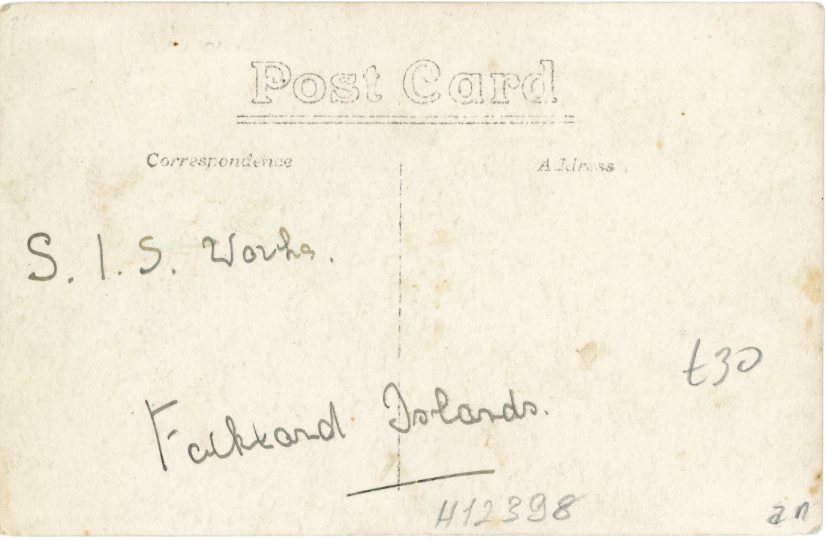 Post Card
Correspondence
Address
S. I. S. Works.
£30
Falkland Islands.
H12398
an